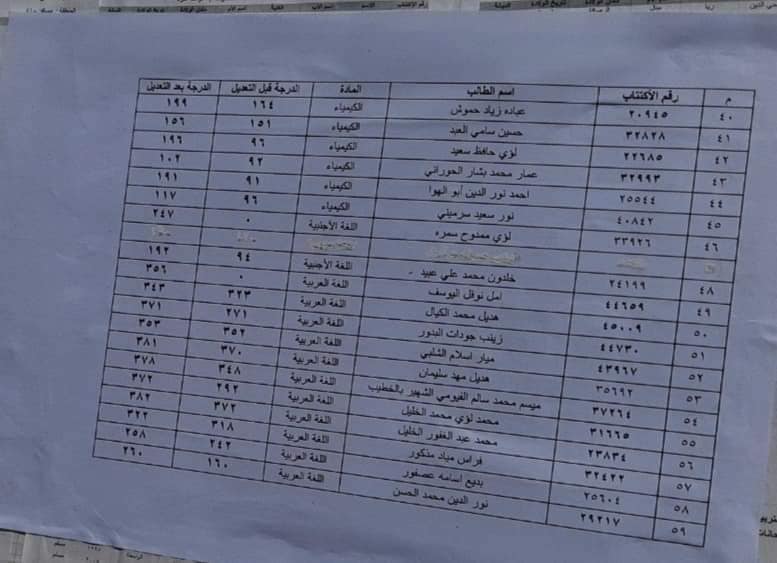 م رقم الأكتتاب اسم الطالب المادة الدرجة قبل التعديل الدرجة بعد التعديل
٤٠ ٢٠٩٤٥ عباده زياد حموش الكيمياء ١٦٤ ١٩٩
٤١ ٣٢٨٢٨ حسين سامي العبد الكيمياء ١٥١ ١٥٦
٤٢ ٢٢٦٨٥ لؤي حافظ سعيد الكيمياء ٩٦ ١٩٦
٤٣ ٣٢٩٩٣ عمار محمد بشار الحوراني الكيمياء ٩٢ ١٠٢
٤٤ ٢٥٥٤٤ احمد نور الدين أبو الهوا الكيمياء ٩١ ١٩١
٤٥ ٤٠٨٤٢ نور سعيد سرميني الكيمياء ٩٦ ١١٧
٤٦ ٣٣٩٢٦ لؤي ممدوح سمره اللغة الأجنبية ٠ ٢٤٧
٤٨ ٢٤١٩٩ خلدون محمد علي عبيد اللغة الأجنبية ٩٤ ١٩٢
٤٩ ٤٤٦٥٩ امل نوفل اليوسف اللغة العربية ٠ ٣٥٦
٥٠ ٤٥٠٠٩ هديل محمد الكيال اللغة العربية ٣٢٣ ٣٤٣
٥١ ٤٤٧٣٠ زينب جودات البدور اللغة العربية ٢٧١ ٣٧١
٥٢ ٤٣٩٦٧ ميار اسلام الشلبي اللغة العربية ٣٥٢ ٣٥٣
٥٣ ٣٥٦٩٢ هديل مهد سليمان اللغة العربية ٣٧٠ ٣٨١
٥٤ ٣٧٢٦٤ ميسم محمد سالم الفيومي الشهير بالخطيب اللغة العربية ٣٤٨ ٣٧٨
٥٥ ٣١٦٦٥ محمد لؤي محمد الخليل اللغة العربية ٢٩٢ ٣٧٢
٥٦ ٢٣٨٣٤ محمد عبد الغفور الخليل اللغة العربية ٣٧٢ ٣٨٢
٥٧ ٣٢٤٢٢ فراس مياد مذكور اللغة العربية ٣١٨ ٣٢٢
٥٨ ٢٥٦٠٤ بديع اسامه عصفور اللغة العربية ٢٤٢ ٢٥٨
٥٩ ٢٩٢١٧ نور الدين محمد الحسن اللغة العربية ١٦٠ ٢٦٠